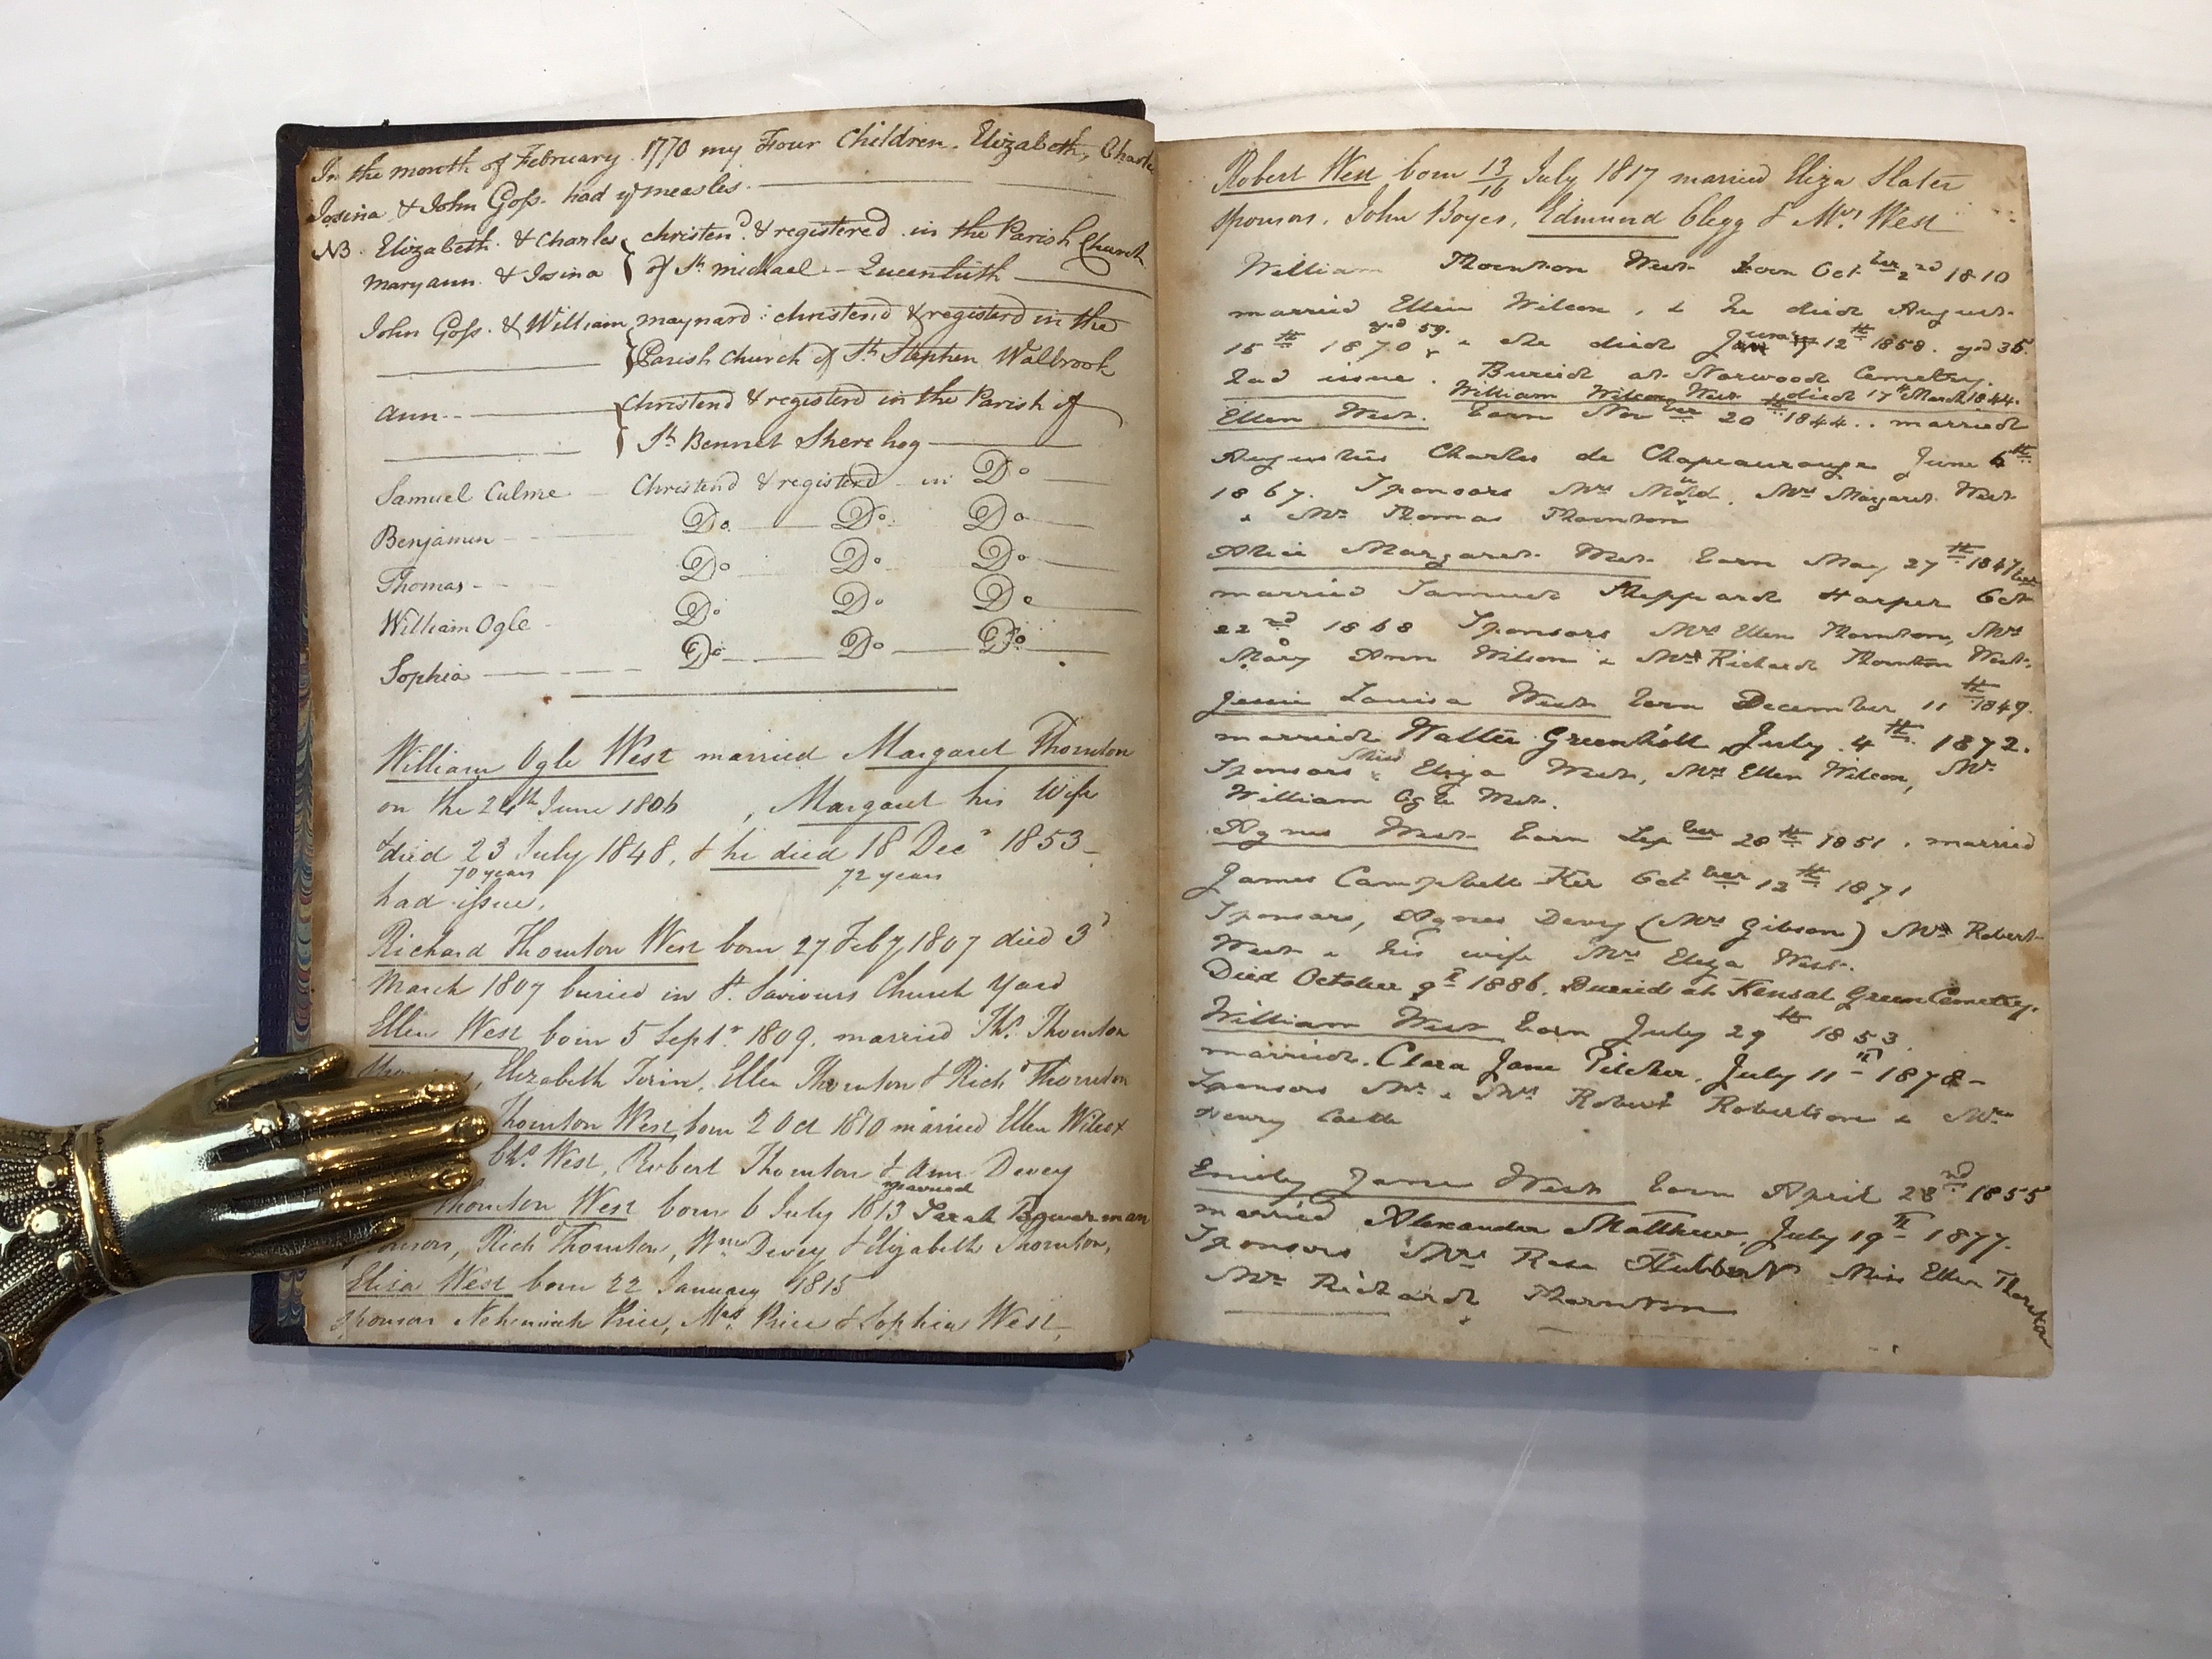 In the month of February 1770 my Four Children. Elizabeth, Charles
Josina & John Goſs. had yͤ measles.
NB. Elizabeth. & Charles christenᵈ. & registered in the Parish Church
maryann. & Josina of Sᵗ. michael - Queenhith
John Goſs. & William maynard: christend & registerd in the
Parish church of Sᵗ. Stephen Walbrook
ann christend & registerd in the Parish of
Sᵗ. Bennet Shere hog
Samuel Culme Christend & registerd in Dᵒ
Benjamin Dᵒ Dᵒ Dᵒ
Thomas Dᵒ Dᵒ Dᵒ
William Ogle Dᵒ Dᵒ Dᵒ
Sophia Dᵒ Dᵒ Dᵒ
William Ogle West married Margaret Thornton
on the 24th June 1806, Margaret his Wife
died 23 July 1848, & he died 18 Decʳ 1853
70 years 72 years
had iſsue,
Richard Thornton West born 27 Feby 1807 died 3ᵈ
March 1807 buried in Sᵗ. Saviours Church Yard
Ellen West born 5 Septʳ 1809. married Thˢ. Thornton
Elizabeth Torin, Ellen Thornton & Richᵈ Thornton
Thornton West born 2 Oct 1810 married Ellen Wilcox
Chˢ. West, Robert Thornton & Ann Devey
married
Thornton West born 6 July 1813 Sarah Bowerman
Richᵈ Thornton, Wm Devey & Elizabeth Thornton,
Eliza West born 22 January 1815
Sponsors Nehemiah Price, Mrs. Price & Sophia West,
Robert West born 13/16 July 1817 married Eliza Slater
Sponsors, John Boyes, Edmund Clegg & Mrs West
William Thornton West born Octber 2nd 1810
married Ellen Wilcox, & he died August
15th 1870 agd 59. & she died January 12th 1858. agd 35.
had issue. Buried at Norwood Cemetry.
William Wilcox West died 17th March 1844.
Ellen West. born Novber 20th 1844.. married
Augustus Charles de Chapeaurouge June 6th
1867. Sponsors Mrs Mrs Margaret West
& Mr Thomas Thornton
Alice Margaret West born May 27th 1847
married Samuel Sheppard Harper Octber
22nd 1868 Sponsors Mrs Ellen Thornton, Mrs
Mary Ann Wilson & Mr Richard Thornton West.
Jessie Louisa West born December 11th 1849.
married Walter Greenhill July 4th 1872.
Sponsors Miss Eliza West, Mrs Ellen Wilcox, Mr
William Ogle West.
Agnes West born Sepber 28th 1851. married
James Campbell Ker Octber 12th 1871
Sponsors, Agnes Devey (Mrs Gibson) Mr Robert
West & his wife Mrs Eliza West.
Died October 9th 1886. Buried at Kensal Green Cemetry.
William West born July 29th 1853.
married. Clara Jane Pilcher. July 11th 1878
Sponsors Mr & Mrs Robert Robertson & Mr
Henry Castle
Emily Jane West born April 23rd 1855
married Alexander Matthew. July 19th 1877.
Sponsors Mrs Rose Miss Ellen Thornton
Mr Richard Thornton